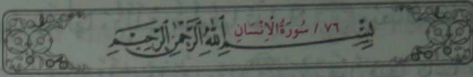 ٧٦ / سُورَةُ الْإِنْسَانِ
بِسْمِ اللَّهِ الرَّحْمَٰنِ الرَّحِيمِ